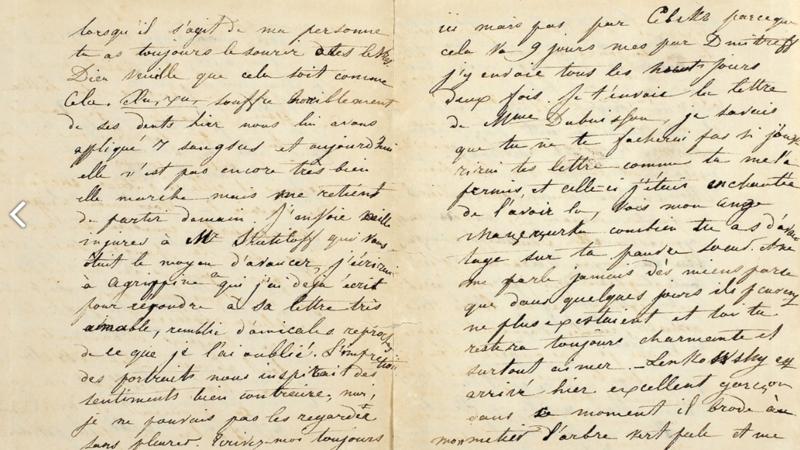 lorsqu'il s'agit de ma personne
tu as toujours le sourir
Dieu veuille que cela soit comme
cela. souffre horriblement
de ses dents hier nous lui avons
appliqué 7 sangsus et aujourd'hui
elle n'est pas encore très bien
elle marche mais me retient
de partir demain. J'envoie mille
injures à Mr qui vous
ôtait le moyen d'avancer, j'écrirai
à Agrippine à qui j'ai déjà écrit
pour répondre à sa lettre très
aimable, remplie d'amicales reproches
de ce que je l'ai oublié. L'impression
des portraits nous inspirait des
sentiments bien contraire, moi,
je ne pouvais pas les regarder
sans pleurer. Ecrivez-moi toujours
ici mais pas par parceque
cela va 9 jours mes par Dmitreff
j'y envoie tous les jours
deux fois. Je t'envoie la lettre
de Mme Dubuisson, je savais
que tu ne te facherai pas si j'ouv
rirai tes lettre comme tu me l'a
permis, et celle-ci j'étais enchantée
de l'avoir lu, vois mon ange
combien tu as d'avan
tage sur ta pauvre soeur. Ane
me parle jamais des miens parce
que dans quelques jours ils peuvent
ne plus existaient et toi tu
restera toujours charmante et
surtout aimer. - est
arrivé hier excellent garçon
dans ce moment il brode à
mon metier l'arbre vert pale et me